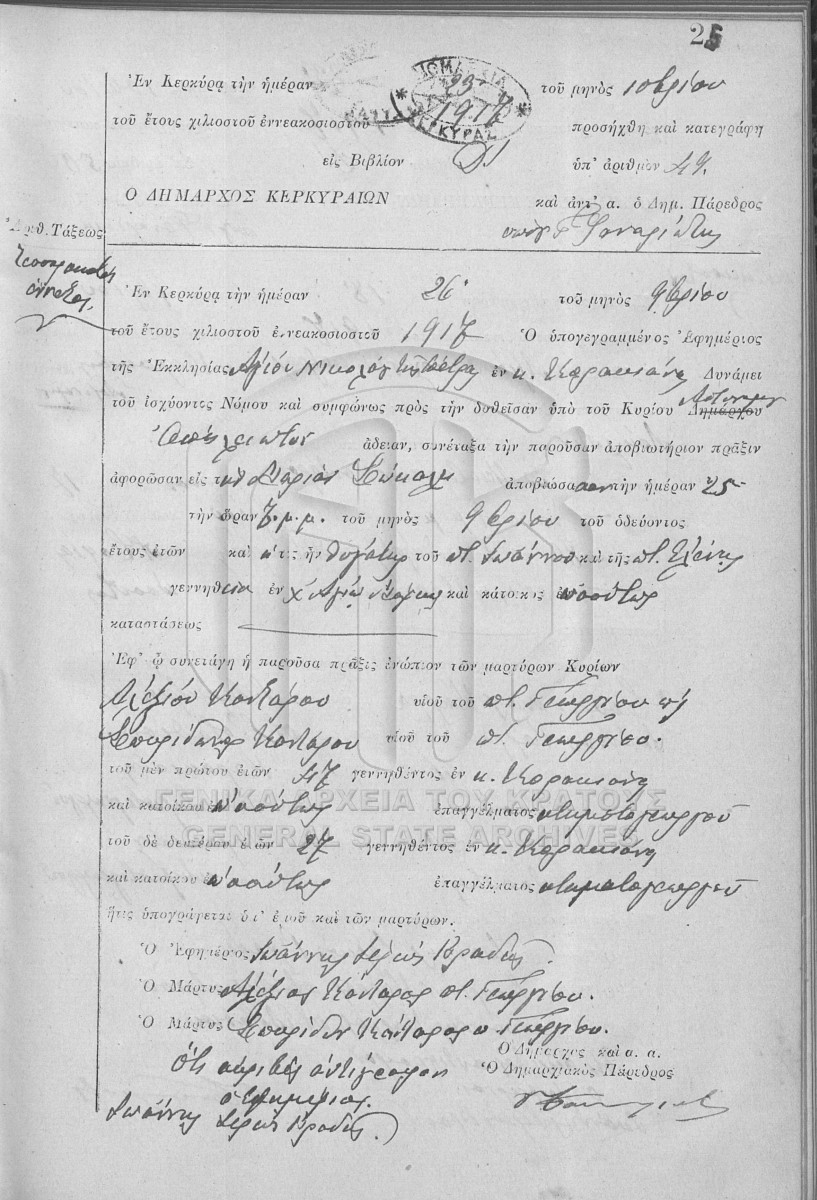 25
Ἐν Κερκύρᾳ τὴν ἡμέραν 23 τοῦ μηνὸς 10βρίου
τοῦ ἔτους χιλιοστοῦ ἐννεακοσιοστοῦ 1917 προσήχθη καὶ κατεγράφη
εἰς Βιβλίον ὑπ' ἀριθμὸν 49.
Ο ΔΗΜΑΡΧΟΣ ΚΕΡΚΥΡΑΙΩΝ καὶ ἀντ' α. ὁ Δημ. Πάρεδρος
ΝΟΜΑΡΧΙΑ
ΚΕΡΚΥΡΑΣ
Ἀριθ. Τάξεως
Ἐν Κερκύρᾳ τὴν ἡμέραν 26 τοῦ μηνὸς 9βρίου
τοῦ ἔτους χιλιοστοῦ ἐννεακοσιοστοῦ 1917 Ὁ ὑπογεγραμμένος Ἐφημέριος
τῆς Ἐκκλησίας Ἁγίου Νικολάου ἐν κ. Κορακιάνα Δυνάμει
τοῦ ἰσχύοντος Νόμου καὶ συμφώνως πρὸς τὴν δοθεῖσαν ὑπὸ τοῦ Κυρίου Δημάρχου
ἄδειαν, συνέταξα τὴν παροῦσαν ἀποβιωτήριον πρᾶξιν
ἀφορῶσαν εἰς τὴν Μαρίαν ἀποβιώσασαν τὴν ἡμέραν 25
τὴν ὥραν 7 μ.μ. τοῦ μηνὸς 9βρίου τοῦ ὁδεύοντος
ἔτους ἐτῶν καὶ ἥτις ἦν θυγάτηρ τοῦ π. Ἰωάννου καὶ τῆς π. Ἑλένης
γεννηθεῖσα ἐν καὶ κάτοικος ἐνταῦθα
καταστάσεως
Ἐφ' ᾧ συνετάγη ἡ παροῦσα πρᾶξις ἐνώπιον τῶν μαρτύρων Κυρίων
Ἀλεξίου Κόνταρου υἱοῦ τοῦ π. Γεωργίου καὶ
Σπυρίδωνος Κόνταρου υἱοῦ τοῦ π. Γεωργίου.
τοῦ μὲν πρώτου ἐτῶν 47 γεννηθέντος ἐν κ. Κορακιάνα
καὶ κατοίκου ἐν ἐπαγγέλματος κτηματογεωργοῦ
ΓΕΝΙΚΑ ΑΡΧΕΙΑ ΤΟΥ ΚΡΑΤΟΥΣ
GENERAL STATE ARCHIVES
τοῦ δὲ δευτέρου ἐτῶν 27 γεννηθέντος ἐν κ. Κορακιάνα
καὶ κατοίκου ἐν ἐπαγγέλματος κτηματογεωργοῦ
ἥτις ὑπογράφεται ὑπ' ἐμοῦ καὶ τῶν μαρτύρων.
Ὁ Ἐφημέριος Ἰωάννης Ἱερεὺς
Ὁ Μάρτυς Ἀλέξιος Κόνταρος π. Γεωργίου.
Ὁ Μάρτυς Σπυρίδων Κόνταρος π. Γεωργίου.
Ὁ Δήμαρχος καὶ α. α.
Ὁ Δημαρχιακὸς Πάρεδρος
Ὅτι ἀκριβὲς ἀντίγραφον
ὁ Ἐφημέριος
Ἰωάννης Ἱερεὺς